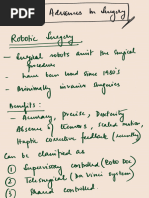 Advances in Surgery
Robotic Surgery
– Surgical robots assist the surgical
procedure
– have been used since 1980's
– Minimally invasive surgeries
Benefits :
– Accuracy, precise, Dexterity
Absence of tremors, scaled motion,
Haptic executive feedback
Can be classified as
1) Supervisory controlled (Robo Doc)
2) Telesurgical (Da Vinci system)
3) Shared controlled